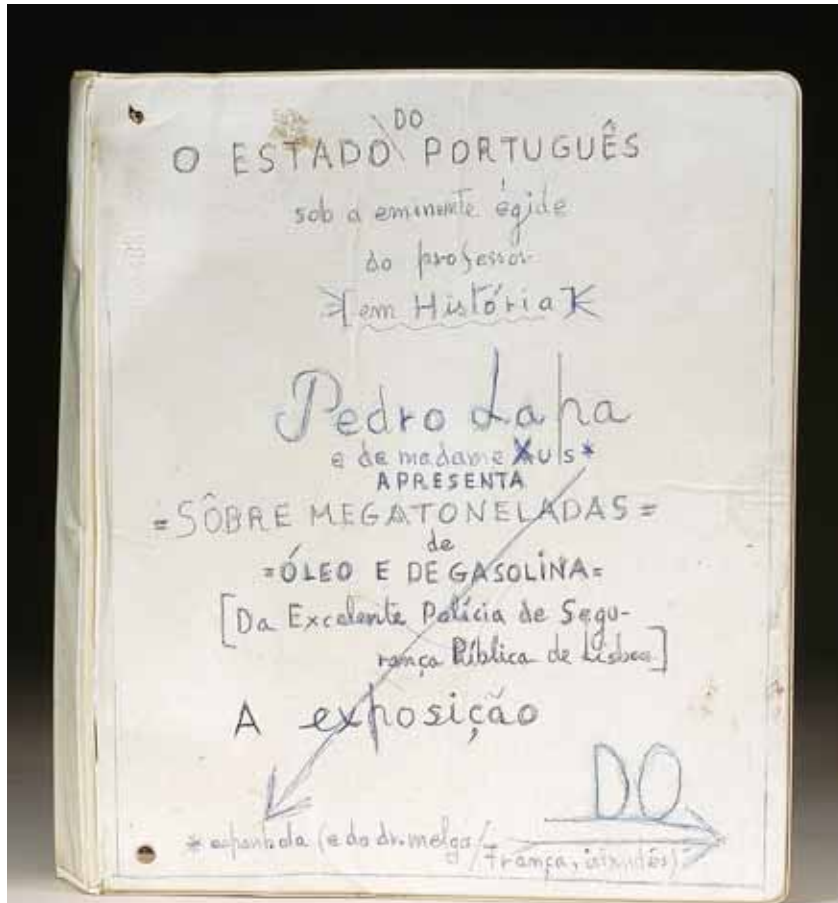 O ESTADO DO PORTUGUÊS
sob a eminente égide
do professor
[em História]
Pedro Lapa
e de madame Xuls*
APRESENTA
=SÔBRE MEGATONELADAS=
de
=ÓLEO E DE GASOLINA=
[Da Excelente Polícia de Segu-
rança Pública de Lisboa]
A exposição
DO
* espanhola (e do dr. melga/França,